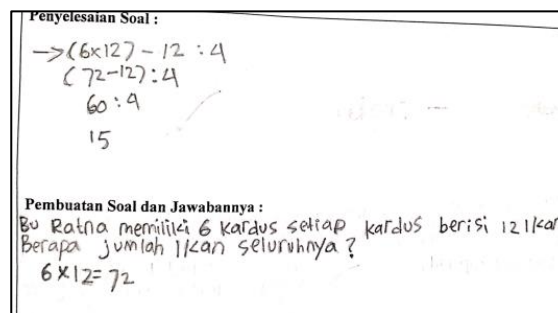 Penyelesaian Soal :
→ (6×12) - 12 : 4
(72-12) : 4
60 : 4
15
Pembuatan Soal dan Jawabannya :
Bu Ratna memiliki 6 kardus setiap kardus berisi 12 Ikan
Berapa jumlah Ikan seluruhnya ?
6×12=72